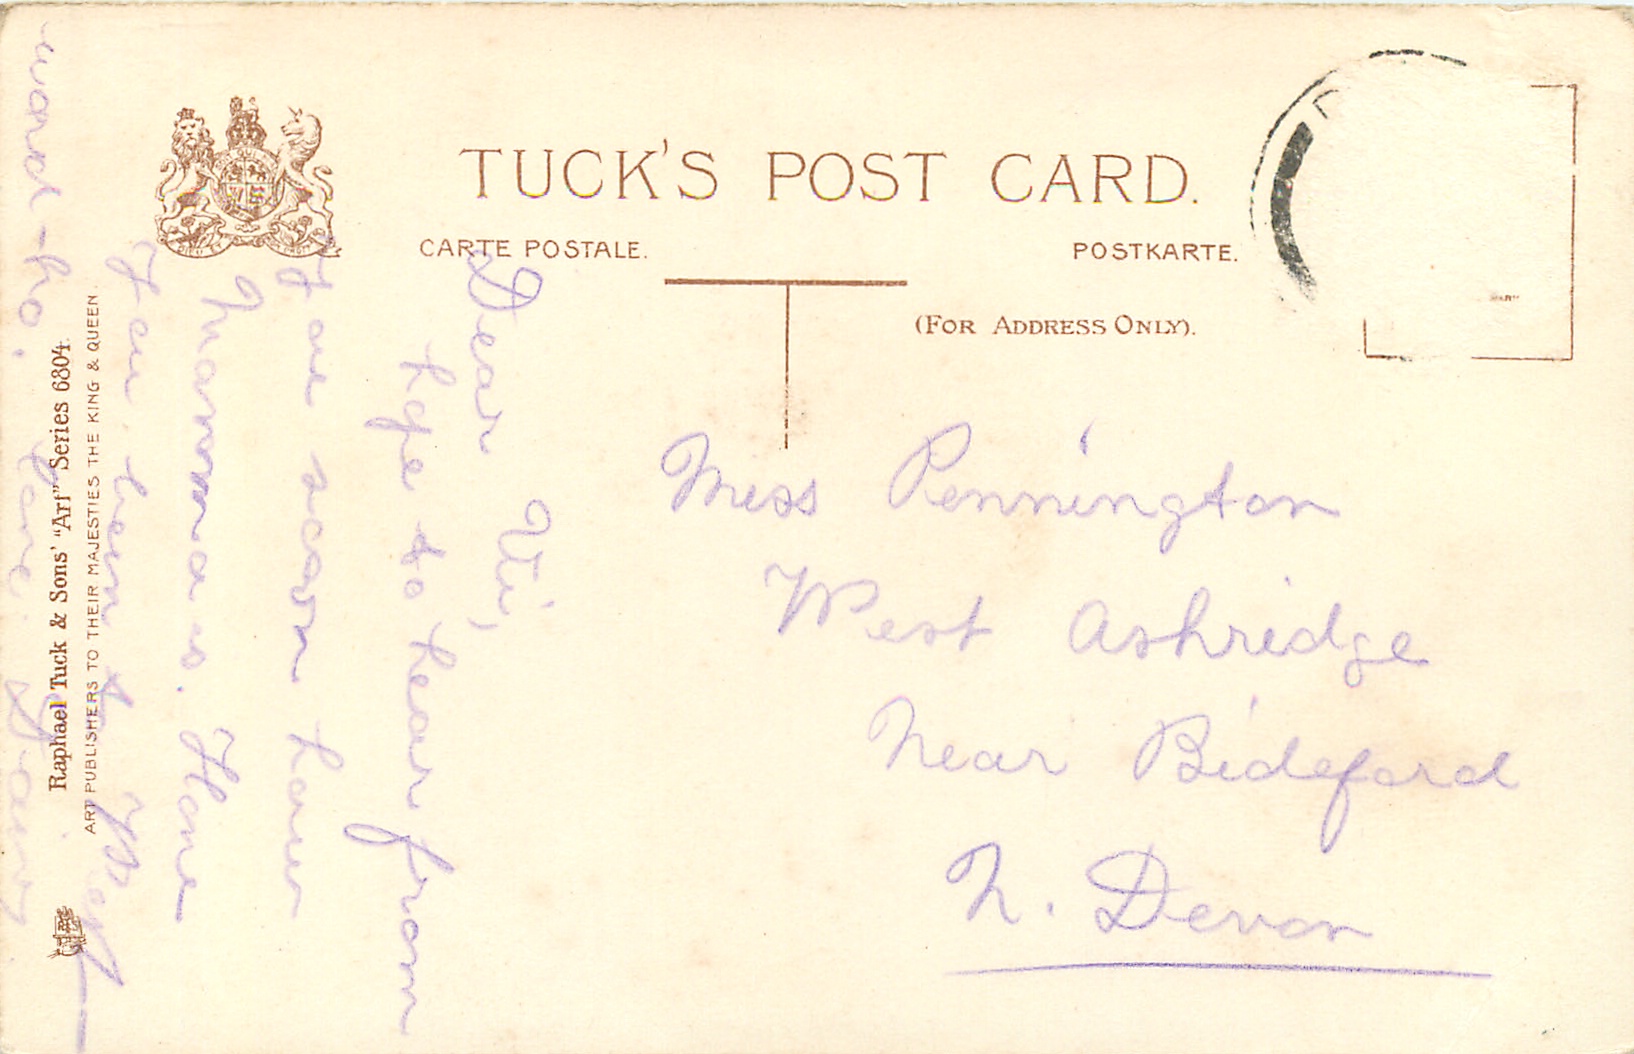 TUCK'S POST CARD.
CARTE POSTALE.
POSTKARTE.
(FOR ADDRESS ONLY).
Miss Pennington
West Ashridge
Near Bideford
N. Devon
Dear Vi,
hope to hear from
you soon how
Mamma is. Have
you been to West
ward Ho,
Raphael Tuck & Sons' "Art" Series 6804.
ART PUBLISHERS TO THEIR MAJESTIES THE KING & QUEEN.